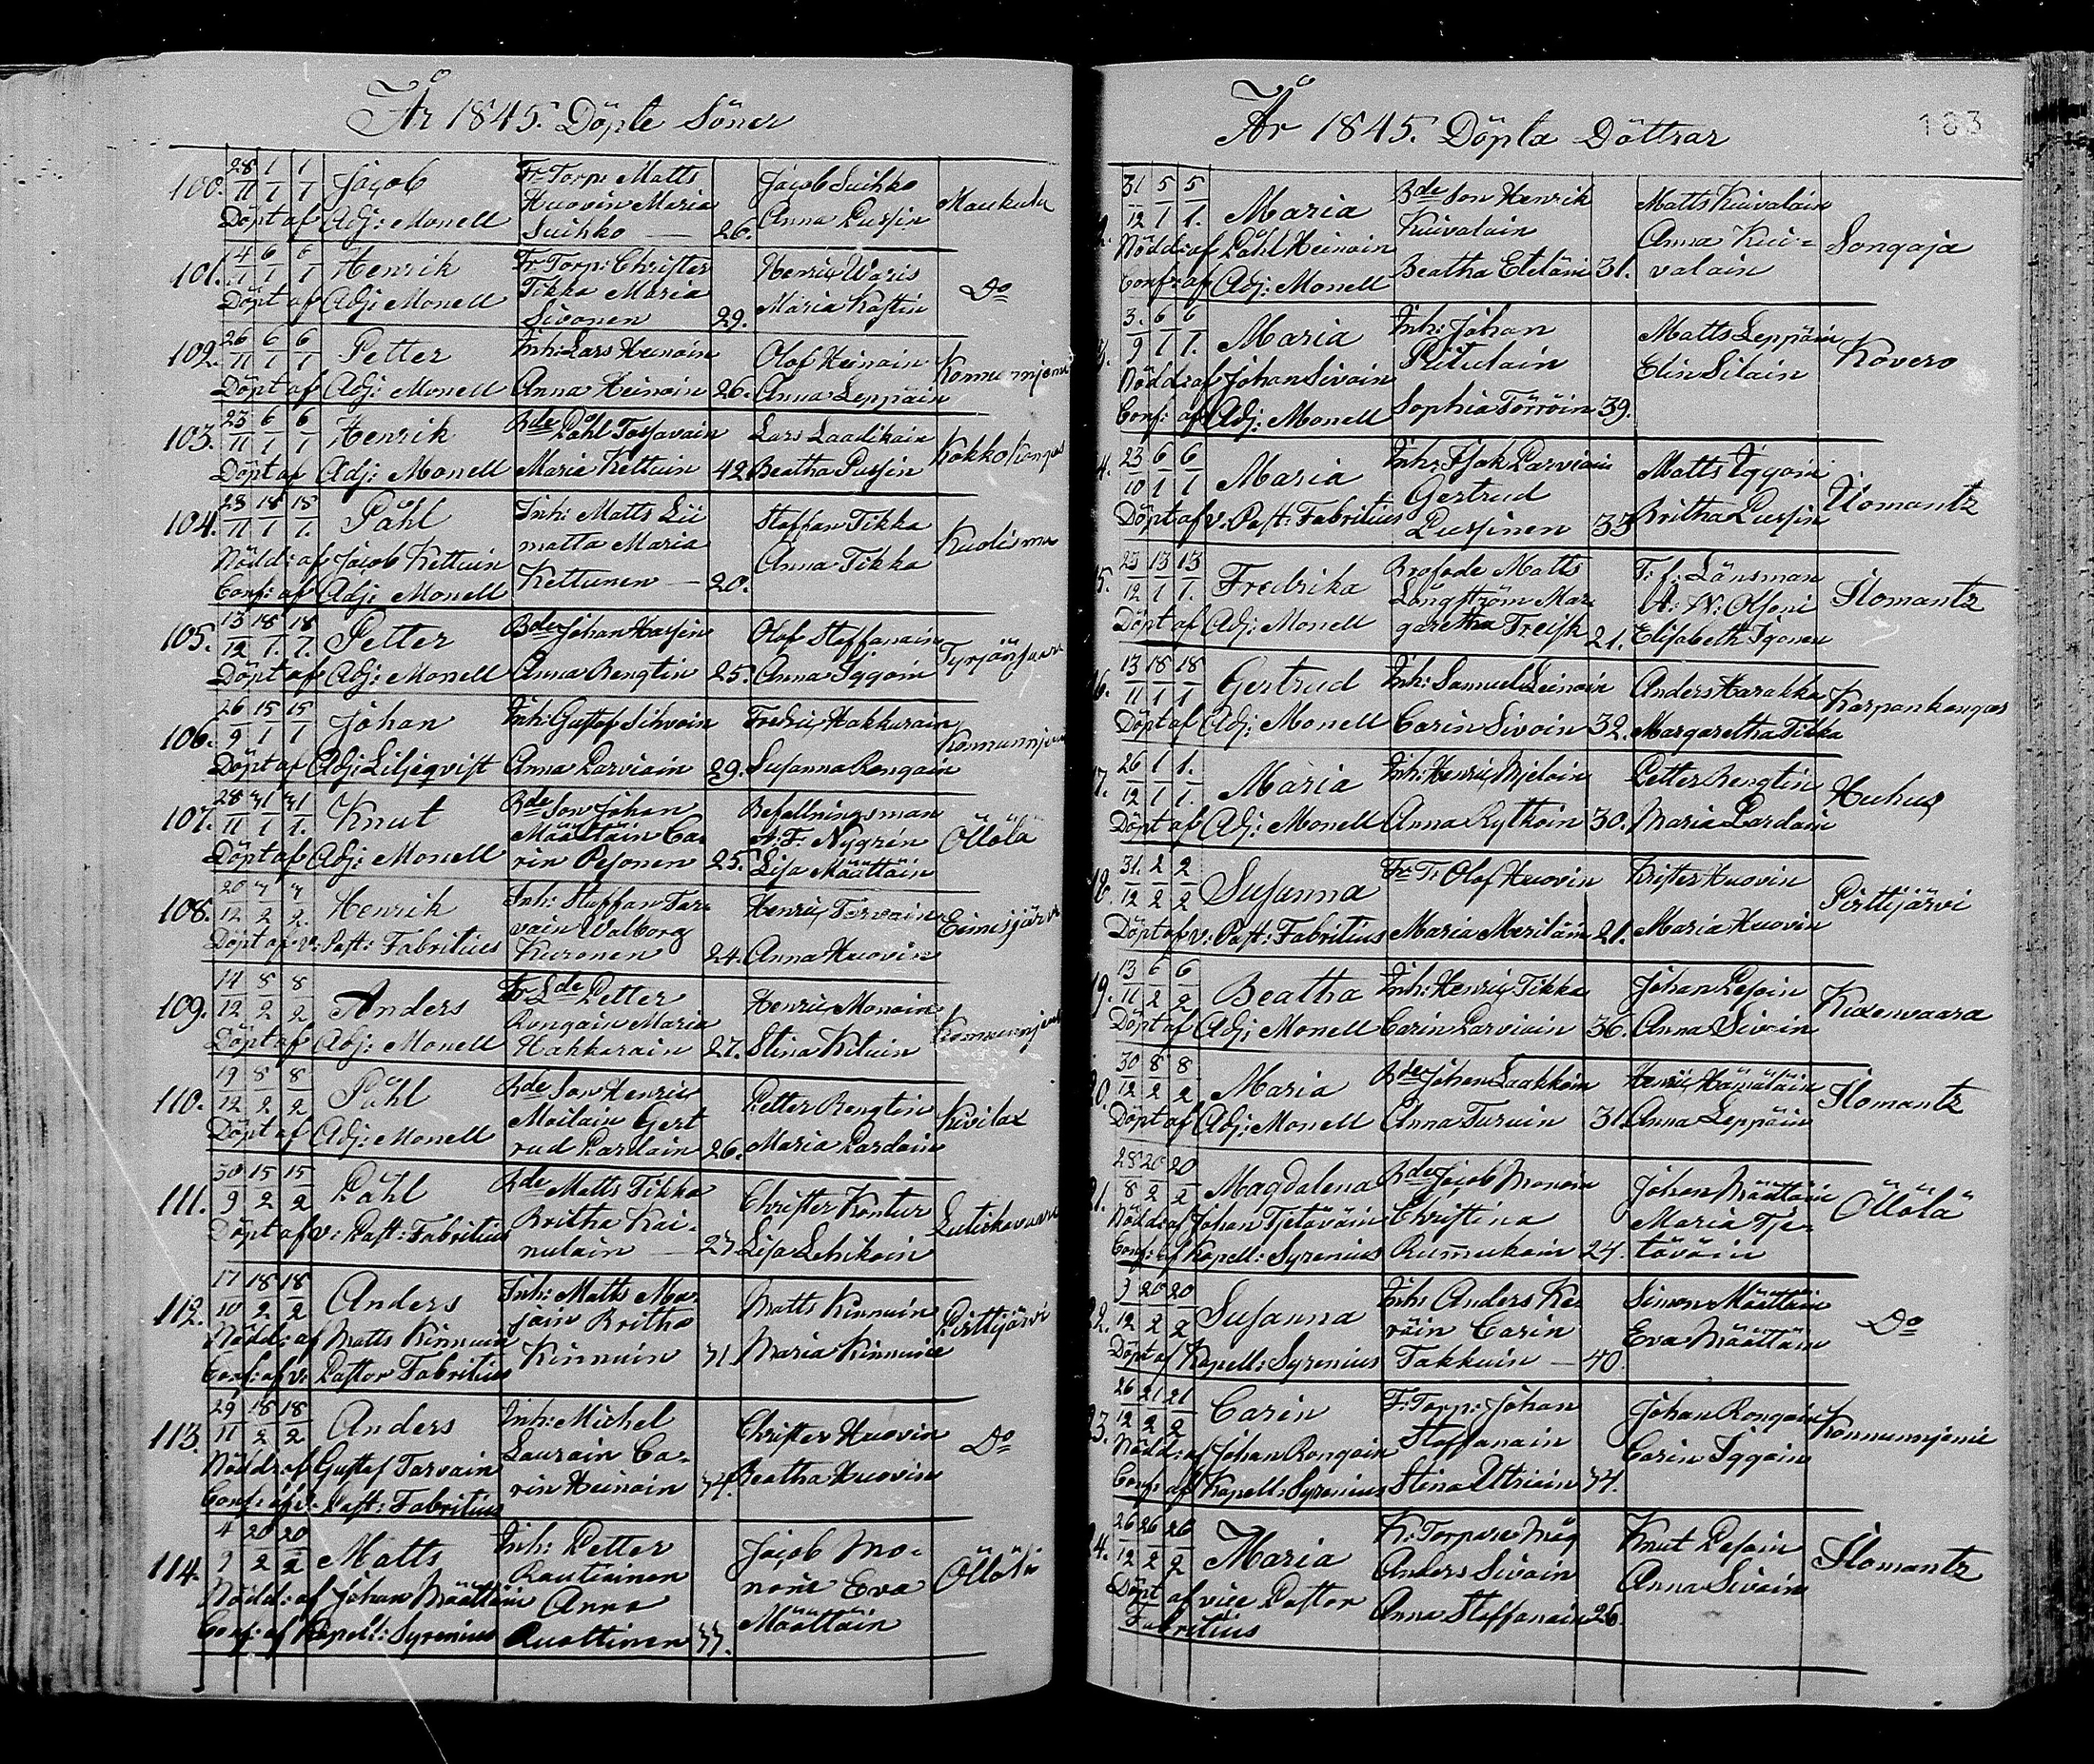 År 1845. Döpte Söner
100. 28/11 1/1 1/1 Jacob Fr. Torp: Matts Huovin Maria Suihko — 26. Jacob Suihko Anna Pussin Maukula
Döpt af Adj: Monell
101. 14/11 6/1 6/1 Henrik Fr. Torp: Christer Tikka Maria Sivonen 29. Henric Waris Maria Kastin Do
Döpt af Adj: Monell
102. 26/11 6/1 6/1 Petter Inh: Lars Heinoin Anna Heinoin 26. Olof Heinoin Anna Leppäin
Döpt af Adj: Monell
103. 23/11 6/1 6/1 Henrik Bde Påhl Tossavain Maria Kettuin 42. Lars Laadikain Beatha Pussin Kokko Kangas
Döpt af Adj: Monell
104. 23/11 18/1 18/1. Påhl Inh: Matts Liimatta Maria Kettunen — 20. Staffan Tikka Anna Tikka Kuolisma
Nödd: af Jacob Kettuin
Conf: af Adj: Monell
105. 13/12 18/1. 18/1. Petter Bde Johan Hassin Anna Bengtin 25. Olof Staffanain Anna Iggoin
Döpt af Adj: Monell
106. 26/9 15/1 15/1 Johan Inh: Gustaf Sihvoin Anna Parviain 29. Fredric Hakkarain Susanna Rongain
Döpt af Adj: Liljeqvist
107. 28/11 31/1 31/1. Knut Bde Son Johan Määttäin Carin Pesonen 25. Befallningsman A: F: Nygrén Lisa Määttäin Öllölä
Döpt af Adj: Monell
108. 20/12 7/2 7/2. Henrik Inh: Staffan Tarvain Walborg Kuronen 24. Henric Tarvain Anna Huovin Eimisjärvi
Döpt af v: Past: Fabritius
109. 14/12 8/2 8/2 Anders Petter Rongain Maria Hakkarain 27. Henric Monoin Stina Kituin
Döpt af Adj: Monell
110. 19/12 8/2 8/2 Påhl Bde Son Henric Moilain Gertrud Pardain 26. Petter Bengtin Maria Pardain Kivilax
Döpt af Adj: Monell
111. 30/9 15/2 15/2 Påhl Bde Matts Tikka Britha Kainulain — 23 Christer Kontur Lisa Lehikoin Lutiskavaara
Döpt af v: Past: Fabritius
112. 17/10 18/2 18/2 Anders Inh: Matts Majoin Britha Kinnuin 31. Matts Kinnuin Maria Kinnuin Pirttijärvi
Nödd: af Matts Kinnuin
Conf: af v: Pastor Fabritius
113. 29/11 18/2 18/2 Anders Inh: Michel Laurain Carin Heinoin 34. Christer Huovin Beatha Huovin Do
Nödd: af Gustaf Tarvain
Conf: af v: Past: Fabritius
114. 4/9 20/2 20/2 Matts Inh: Petter Rautiainen Anna Auottinen 33. Jacob Monoin Eva Määttäin Öllölä
Nödd: af Johan Määttäin
Conf: af Kapell: Syrenius
År 1845. Döpta Döttrar
183
31/12 5/1 5/1. Maria Bde Son Henrik Kuivalain Beatha Eteläin 31. Matts Kuivalain Anna Kuivalain Songaja
Nödd: af Påhl Heinoin
Conf: af Adj: Monell
3./9 6/1 6/1. Maria Inh: Johan Pitulain Sophia Törröin 39. Matts Leppäin Elin Silain Kovero
Nödd: af Johan Sivoin
Conf: af Adj: Monell
4. 23/10 6/1 6/1 Maria Inh: Isak Parviain Gertrud Pussinen 33 Matts Iggoin Britha Pussin Ilomantz
Döpt af v: Past: Fabritius
5. 23/12 13/1 13/1. Fredrika Matts Långström Margaretha Freisk 21. T: f: Länsman A: W: Olsoni Elisabeth Igonen Ilomantz
Döpt af Adj: Monell
6. 13/11 18/1 18/1 Gertrud Inh: Samuel Leinoin Carin Sivoin 32. Anders Harakka Margaretha Tikka Karpankangas
Döpt af Adj: Monell
7. 26/12 1/1 1./1. Maria Inh: Henric Mjeloin Anna Rytkoin 30. Petter Bengtin Maria Pardain Huhus
Döpt af Adj: Monell
8. 31./12 2/2 2/2 Susanna Fr. T: Olof Huovin Maria Meriläin 21. Krister Huovin Maria Huovin Pirttijärvi
Döpt af v: Past: Fabritius
9. 13/11 6/2 6/2 Beatha Inh: Henric Tikka Carin Parviain 36. Johan Pesoin Anna Sivoin Kuxenvaara
Döpt af Adj: Monell
0. 30/12 8/2 8/2 Maria Bde Johan Laakkoin Anna Turuin 31. Henric Hämäläin Anna Leppäin Ilomantz
Döpt af Adj: Monell
21. 28/8 20/2 20/2 Magdalena Bde Jacob Monoin Christina Rummukain 24. Johan Määttäin Maria Tjetäväin Öllölä
Nödd: af Johan Tjetäväin
Conf: af Kapell: Syrenius
22. 9/12 20/2 20/2 Susanna Inh: Anders Keräin Carin Takkuin — 40. Simon Määttäin Eva Määttäin Do
Döpt af Kapell: Syrenius
23. 26/12 21/2 21/2 Carin F: Torp: Johan Staffanain Stina Utriain 34. Johan Rongain Carin Iggoin Konnunnjemi
Nödd: af Johan Rongain
Conf: af Kapell: Syrenius
4. 26/12 26/2 26/2 Maria K: Torpare Måg Anders Sivoin Anna Staffanain 26. Knut Pesoin Anna Sivoin Ilomantz
Döpt af vice Pastor
Fabritius